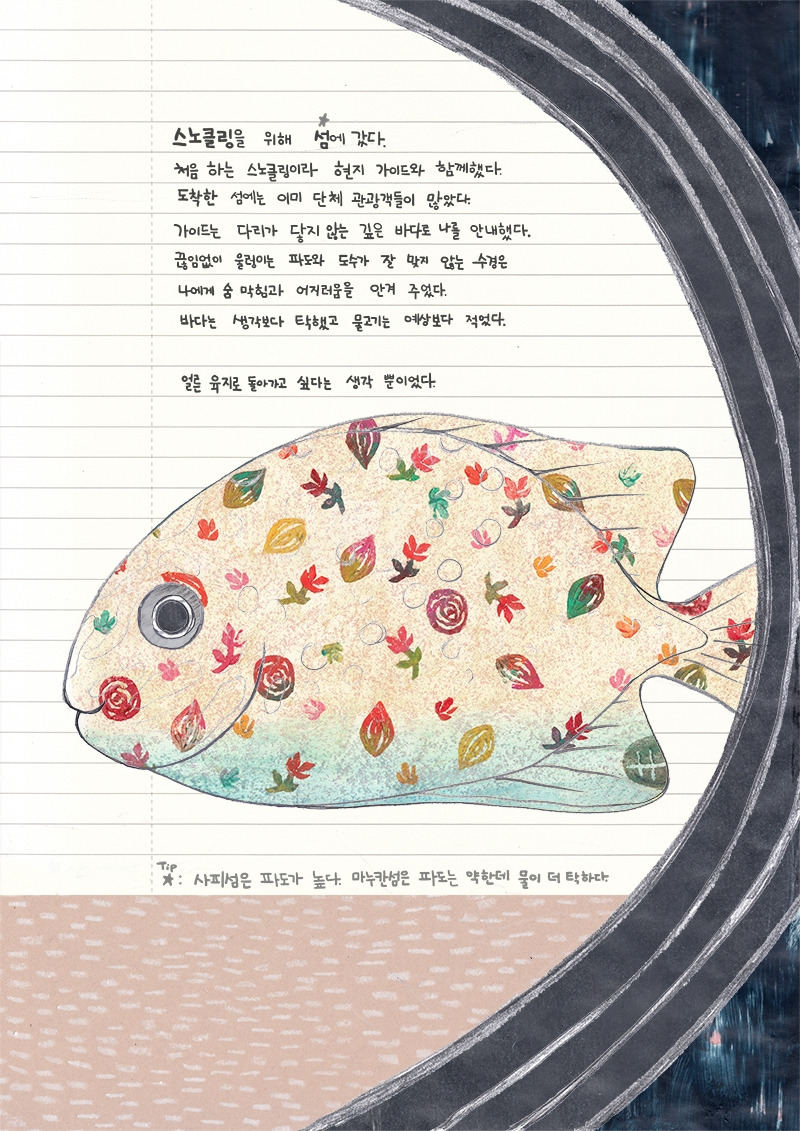 스노클링을 위해 섬에 갔다.
처음 하는 스노클링이라 현지 가이드와 함께했다.
도착한 섬에는 이미 단체 관광객들이 많았다.
가이드는 다리가 닿지 않는 깊은 바다로 나를 안내했다.
끊임없이 울렁이는 파도와 도수가 잘 맞지 않는 수경은
나에게 숨 막힘과 어지러움을 안겨 주었다.
바다는 생각보다 탁했고 물고기는 예상보다 적었다.
얼른 육지로 돌아가고 싶다는 생각 뿐이었다.
Tip
★: 사피섬은 파도가 높다. 마누칸섬은 파도는 약한데 물이 더 탁하다.